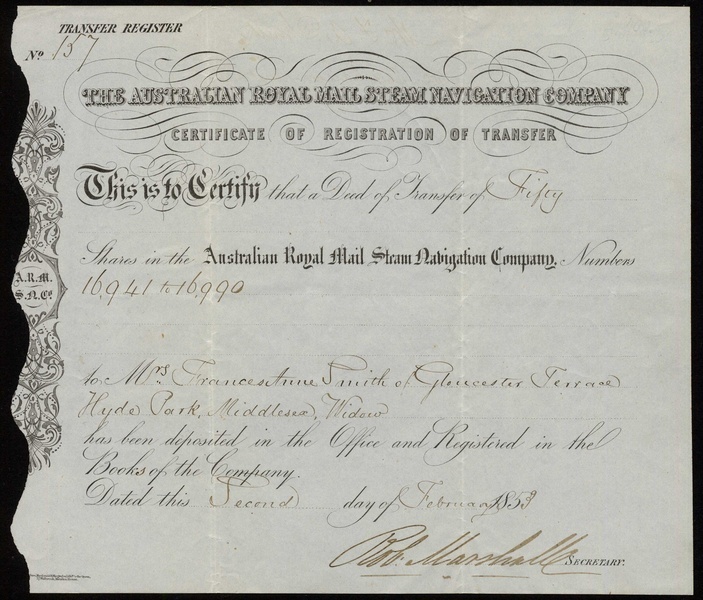 TRANSFER REGISTER
No. 157
THE AUSTRALIAN ROYAL MAIL STEAM NAVIGATION COMPANY
CERTIFICATE OF REGISTRATION OF TRANSFER
This is to Certify that a Deed of Transfer of Fifty
Shares in the Australian Royal Mail Steam Navigation Company, Numbers
16941 to 16990
A.R.M.
S.N.Co.
to Mrs Frances Anne Smith of Gloucester Terrace
Hyde Park, Middlesex, Widow
has been deposited in the Office and Registered in the
Books of the Company.
Dated this Second day of February 1853
Rob. Marshall SECRETARY.